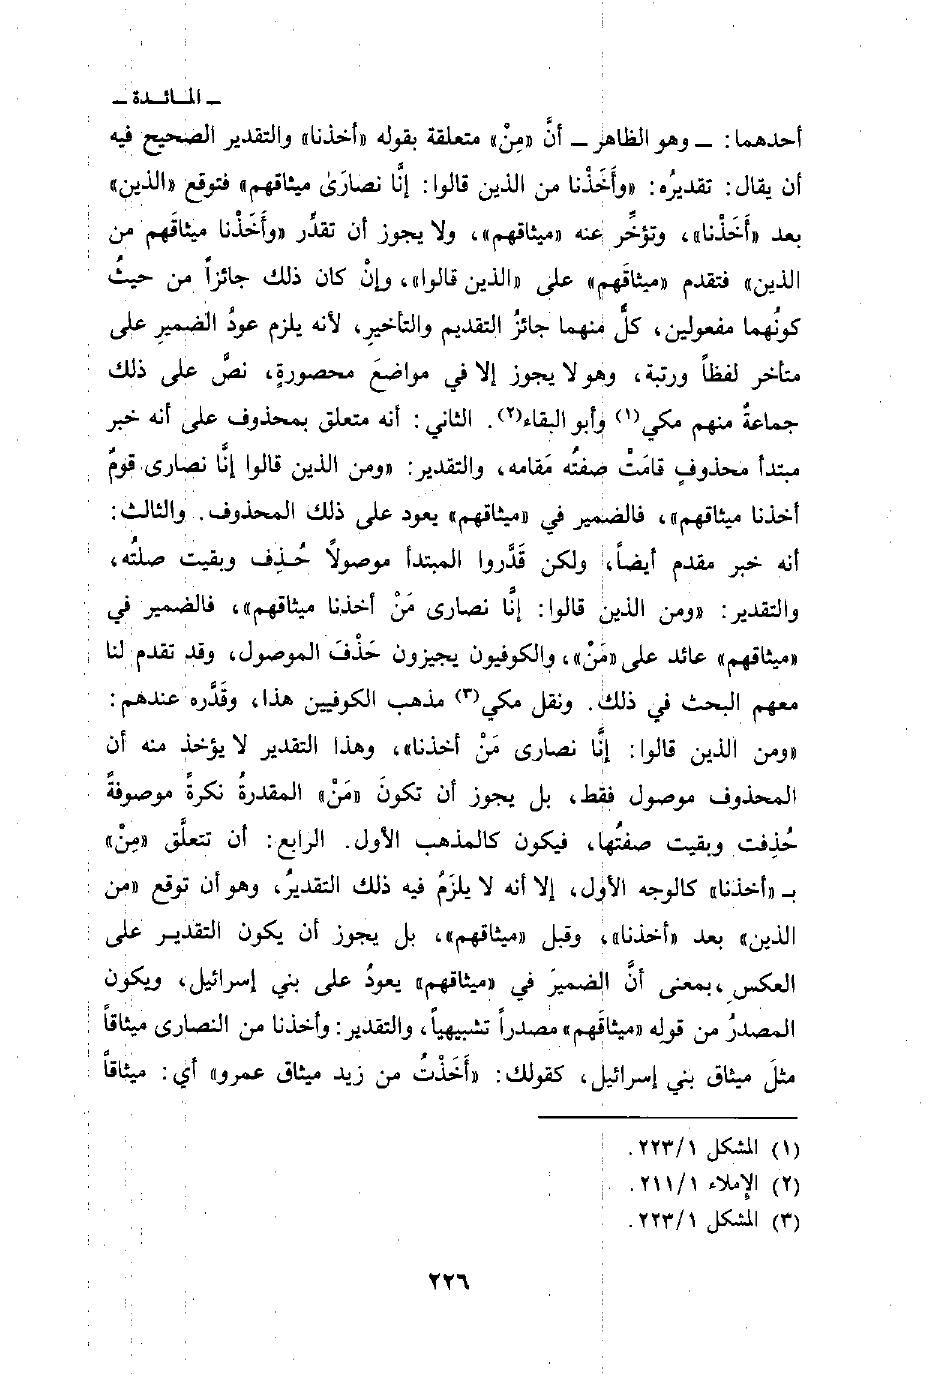 ـ المـائـدة ـ
أحدهما: ـ وهو الظاهر ـ أنَّ «مِنْ» متعلقة بقوله «أخذنا» والتقدير الصحيح فيه
أن يقال: تقديرُه: «وأَخَذْنا من الذين قالوا: إنَّا نصارَىٰ ميثاقهم» فتوقع «الذين»
بعد «أَخَذْنا»، وتؤخِّر عنه «ميثاقهم»، ولا يجوز أن تقدِّر «وأَخَذْنا ميثاقَهم من
الذين» فتقدم «ميثاقَهم» على «الذين قالوا»، وإنْ كان ذلك جائزاً من حيثُ
كونُهما مفعولين، كلٌّ منهما جائزُ التقديم والتأخيرِ، لأنه يلزم عودُ الضميرِ على
متأخر لفظاً ورتبة، وهو لا يجوز إلا في مواضعَ محصورةٍ، نصَّ على ذلك
جماعةٌ منهم مكي(١) وأبو البقاء(٢). الثاني: أنه متعلق بمحذوف على أنه خبر
مبتدأ محذوفٍ قامَتْ صفتُه مَقامه، والتقدير: «ومن الذين قالوا إنَّا نصارى قومٌ
أخذنا ميثاقهم»، فالضمير في «ميثاقهم» يعود على ذلك المحذوف. والثالث:
أنه خبر مقدم أيضاً، ولكن قَدَّروا المبتدأ موصولاً حُذِف وبقيت صلتُه،
والتقدير: «ومن الذين قالوا: إنَّا نصارى مَنْ أخذنا ميثاقهم»، فالضمير في
«ميثاقهم» عائد على «مَنْ»، والكوفيون يجيزون حَذْفَ الموصول، وقد تقدم لنا
معهم البحث في ذلك. ونقل مكي(٣) مذهب الكوفيين هذا، وقَدَّره عندهم:
«ومن الذين قالوا: إنَّا نصارى مَنْ أخذنا»، وهذا التقدير لا يؤخذ منه أن
المحذوف موصول فقط، بل يجوز أن تكونَ «مَنْ» المقدرةُ نكرةً موصوفةً
حُذِفت وبقيت صفتُها، فيكون كالمذهب الأول. الرابع: أن تتعلَّق «مِنْ»
بـ «أخذنا» كالوجه الأول، إلا أنه لا يلزَمُ فيه ذلك التقديرُ، وهو أن توقع «من
الذين» بعد «أخذنا»، وقبل «ميثاقهم»، بل يجوز أن يكون التقديـر على
العكسِ، بمعنى أنَّ الضميرَ في «ميثاقهم» يعودُ على بني إسرائيل، ويكون
المصدرُ من قولِه «ميثاقَهم» مصدراً تشبيهياً، والتقدير: وأخذنا من النصارى ميثاقاً
مثلَ ميثاق بني إسرائيل، كقولك: «أَخَذْتُ من زيد ميثاق عمرو» أي: ميثاقاً
(١) المشكل ١/٢٢٣.
(٢) الإملاء ١/٢١١.
(٣) المشكل ١/٢٢٣.
٢٢٦